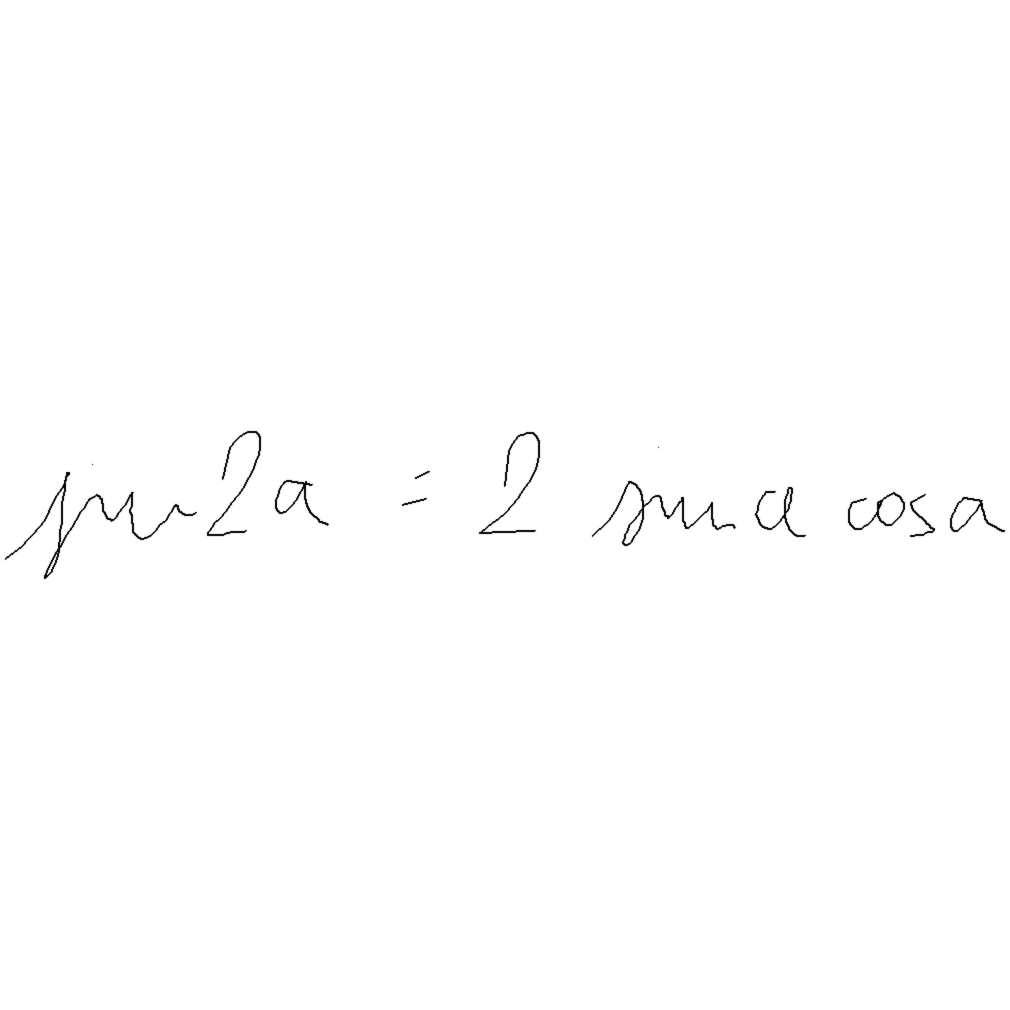 sin 2a = 2 sin a cos a